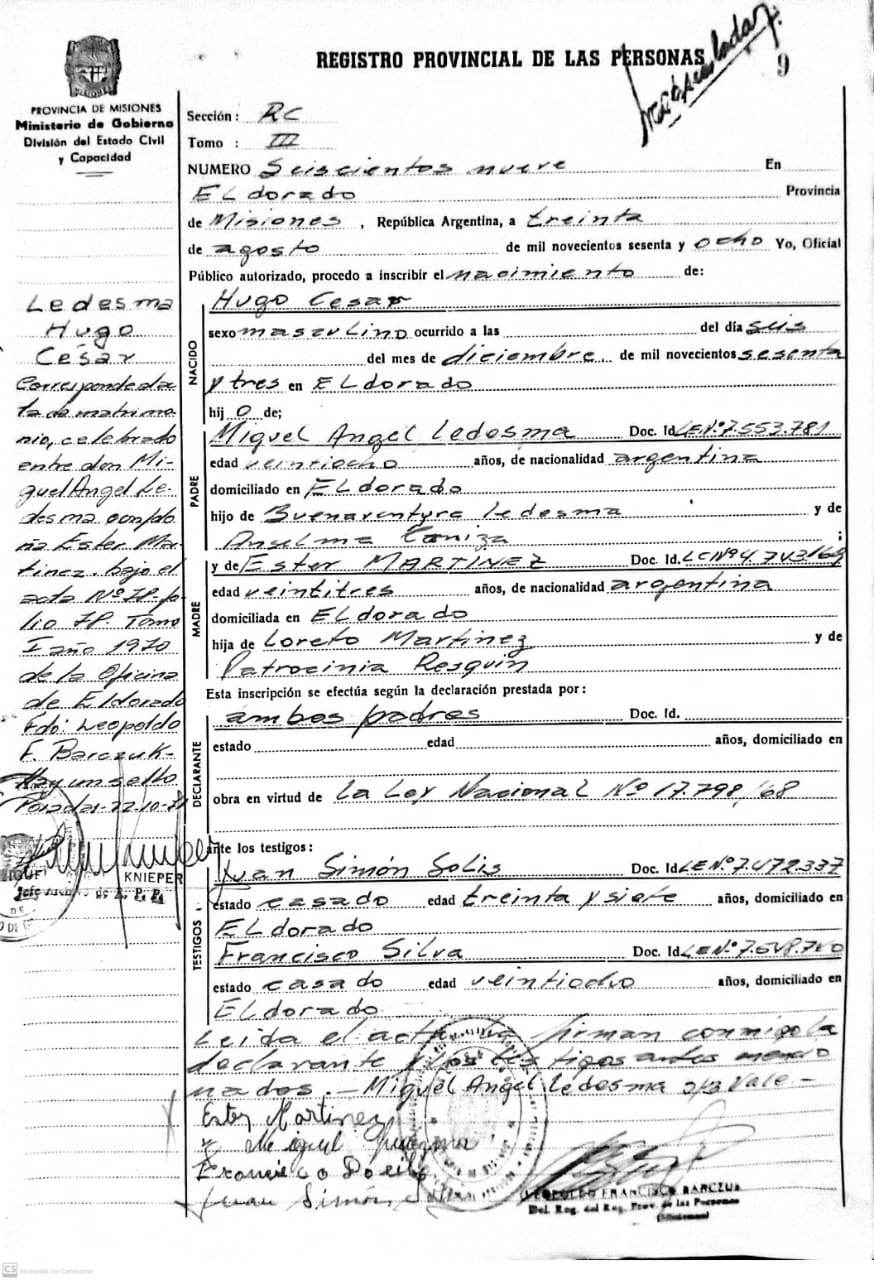 REGISTRO PROVINCIAL DE LAS PERSONAS
9
PROVINCIA DE MISIONES
Ministerio de Gobierno
División del Estado Civil
y Capacidad
Sección: RC
Tomo : III
NUMERO Seiscientos nueve En
ELdorado Provincia
de Misiones, República Argentina, a treinta
de agosto de mil novecientos sesenta y ocho Yo, Oficial
Público autorizado, procedo a inscribir el nacimiento de:
NACIDO
Hugo Cesar
sexo masculino ocurrido a las del día seis
del mes de diciembre. de mil novecientos sesenta
y tres en ELdorado
hijo de;
PADRE
Miguel Angel Ledesma Doc. Id. LE.Nº7.553.781
edad veintiocho años, de nacionalidad argentina
domiciliado en ELdorado
hijo de Buenaventura Ledesma y de
Anselma Caniza ;
MADRE
y de Ester MARTINEZ Doc. Id. LCNº4.743.169
edad veintitres años, de nacionalidad argentina
domiciliada en ELdorado
hija de Loreto Martinez y de
Patrocinia Resquin
Esta inscripción se efectúa según la declaración prestada por:
DECLARANTE
ambos padres Doc. Id.
estado edad años, domiciliado en
obra en virtud de la Ley Nacional Nº 17.798/68
ante los testigos:
TESTIGOS
Juan Simón Solis Doc. Id. LE.Nº7.472.337
estado casado edad treinta y siete años, domiciliado en
ELdorado
Francisco Silva Doc. Id. LE.Nº7.548.740
estado casado edad veintiocho años, domiciliado en
ELdorado
Leida el acta firman conmigo la
declarante y los testigos antes mencio
nados.- Miguel Angel Ledesma Vale-
Ester Martinez
Miguel
Francisco
Juan Simon
LEOPOLDO FRANCISCO BARCZUK
Del. Reg. del Reg. Prov. de las Personas
(Misiones)
Ledesma
Hugo
César
Corresponde al ac
ta de matrimo
nio, celebrado
entre don Mi-
guel Angel Le-
desma con do
ña Ester Mar-
tinez. bajo el
acta Nº 78 fo
lio 78 Tomo
I año 1970
de la Oficina
de Eldorado
Fdo: Leopoldo
F. Barczuk-
Hay un sello
Posadas-22-10-71
KNIEPER
Jefe Archivo de R. P. P.
CS Escaneado con CamScanner